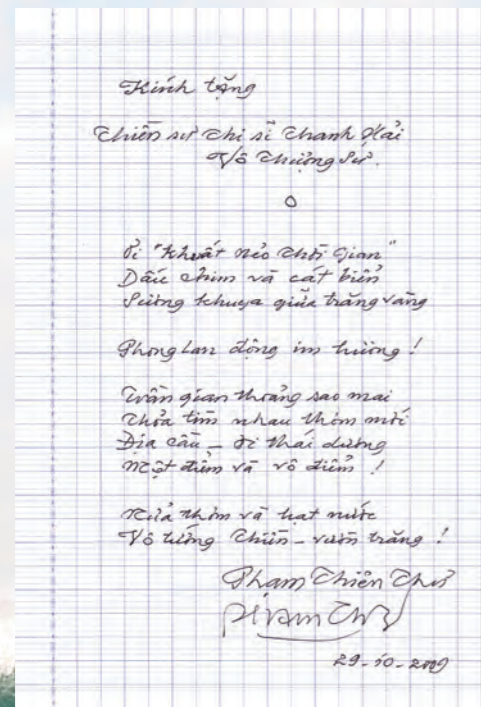 Kính tặng
Thiền sư Thi sĩ Thanh Hải
Vô Thượng Sư.
Ơi "Khuất nẻo Thời Gian"
Dấu chim và cát biển
Sương khuya giữa trăng vàng
Phong Lan động im tường!
Trần gian thoáng sao mai
Thỏa tìm nhau thơm mới
Địa cầu - đi thái dương
Một điểm và vô điểm!
Nửa thơm và hạt nước
Vô tướng Thiền - vườn trăng!
Phạm Thiên Thư
29-10-2009